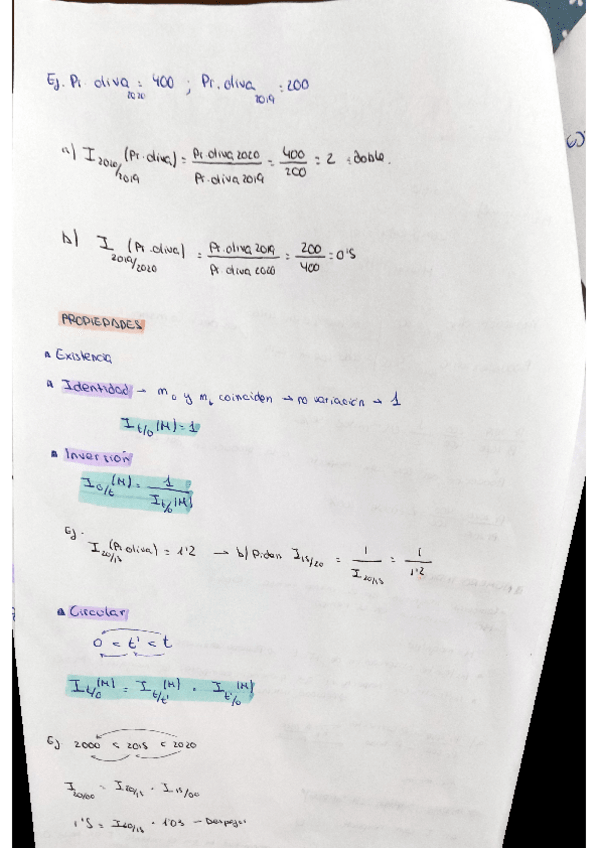 Ej. Pr. oliva 2020 = 400 ; Pr. oliva 2019 = 200
a) I 2020/2019 (Pr. oliva) = Pr. oliva 2020 / Pr. oliva 2019 = 400 / 200 = 2 doble.
b) I 2019/2020 (Pr. oliva) = Pr. oliva 2019 / Pr. oliva 2020 = 200 / 400 = 0'5
PROPIEDADES
Existencia
Identidad → m0 y mt coinciden → no variación → 1
It/0 (M) = 1
Inversión
I0/t (M) = 1 / It/0 (M)
Ej. I20/15 (Pr. oliva) = 1'2 → b) Piden I15/20 = 1 / I20/15 = 1 / 1'2
Circular
0 < t' < t
It/0 (M) = It/t' (M) · It'/0 (M)
Ej 2000 < 2015 < 2020
I20/00 = I20/15 · I15/00
1'5 = I20/15 · 1'03 → Despejar